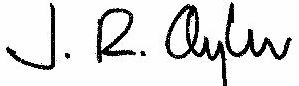 J. R. Oyler